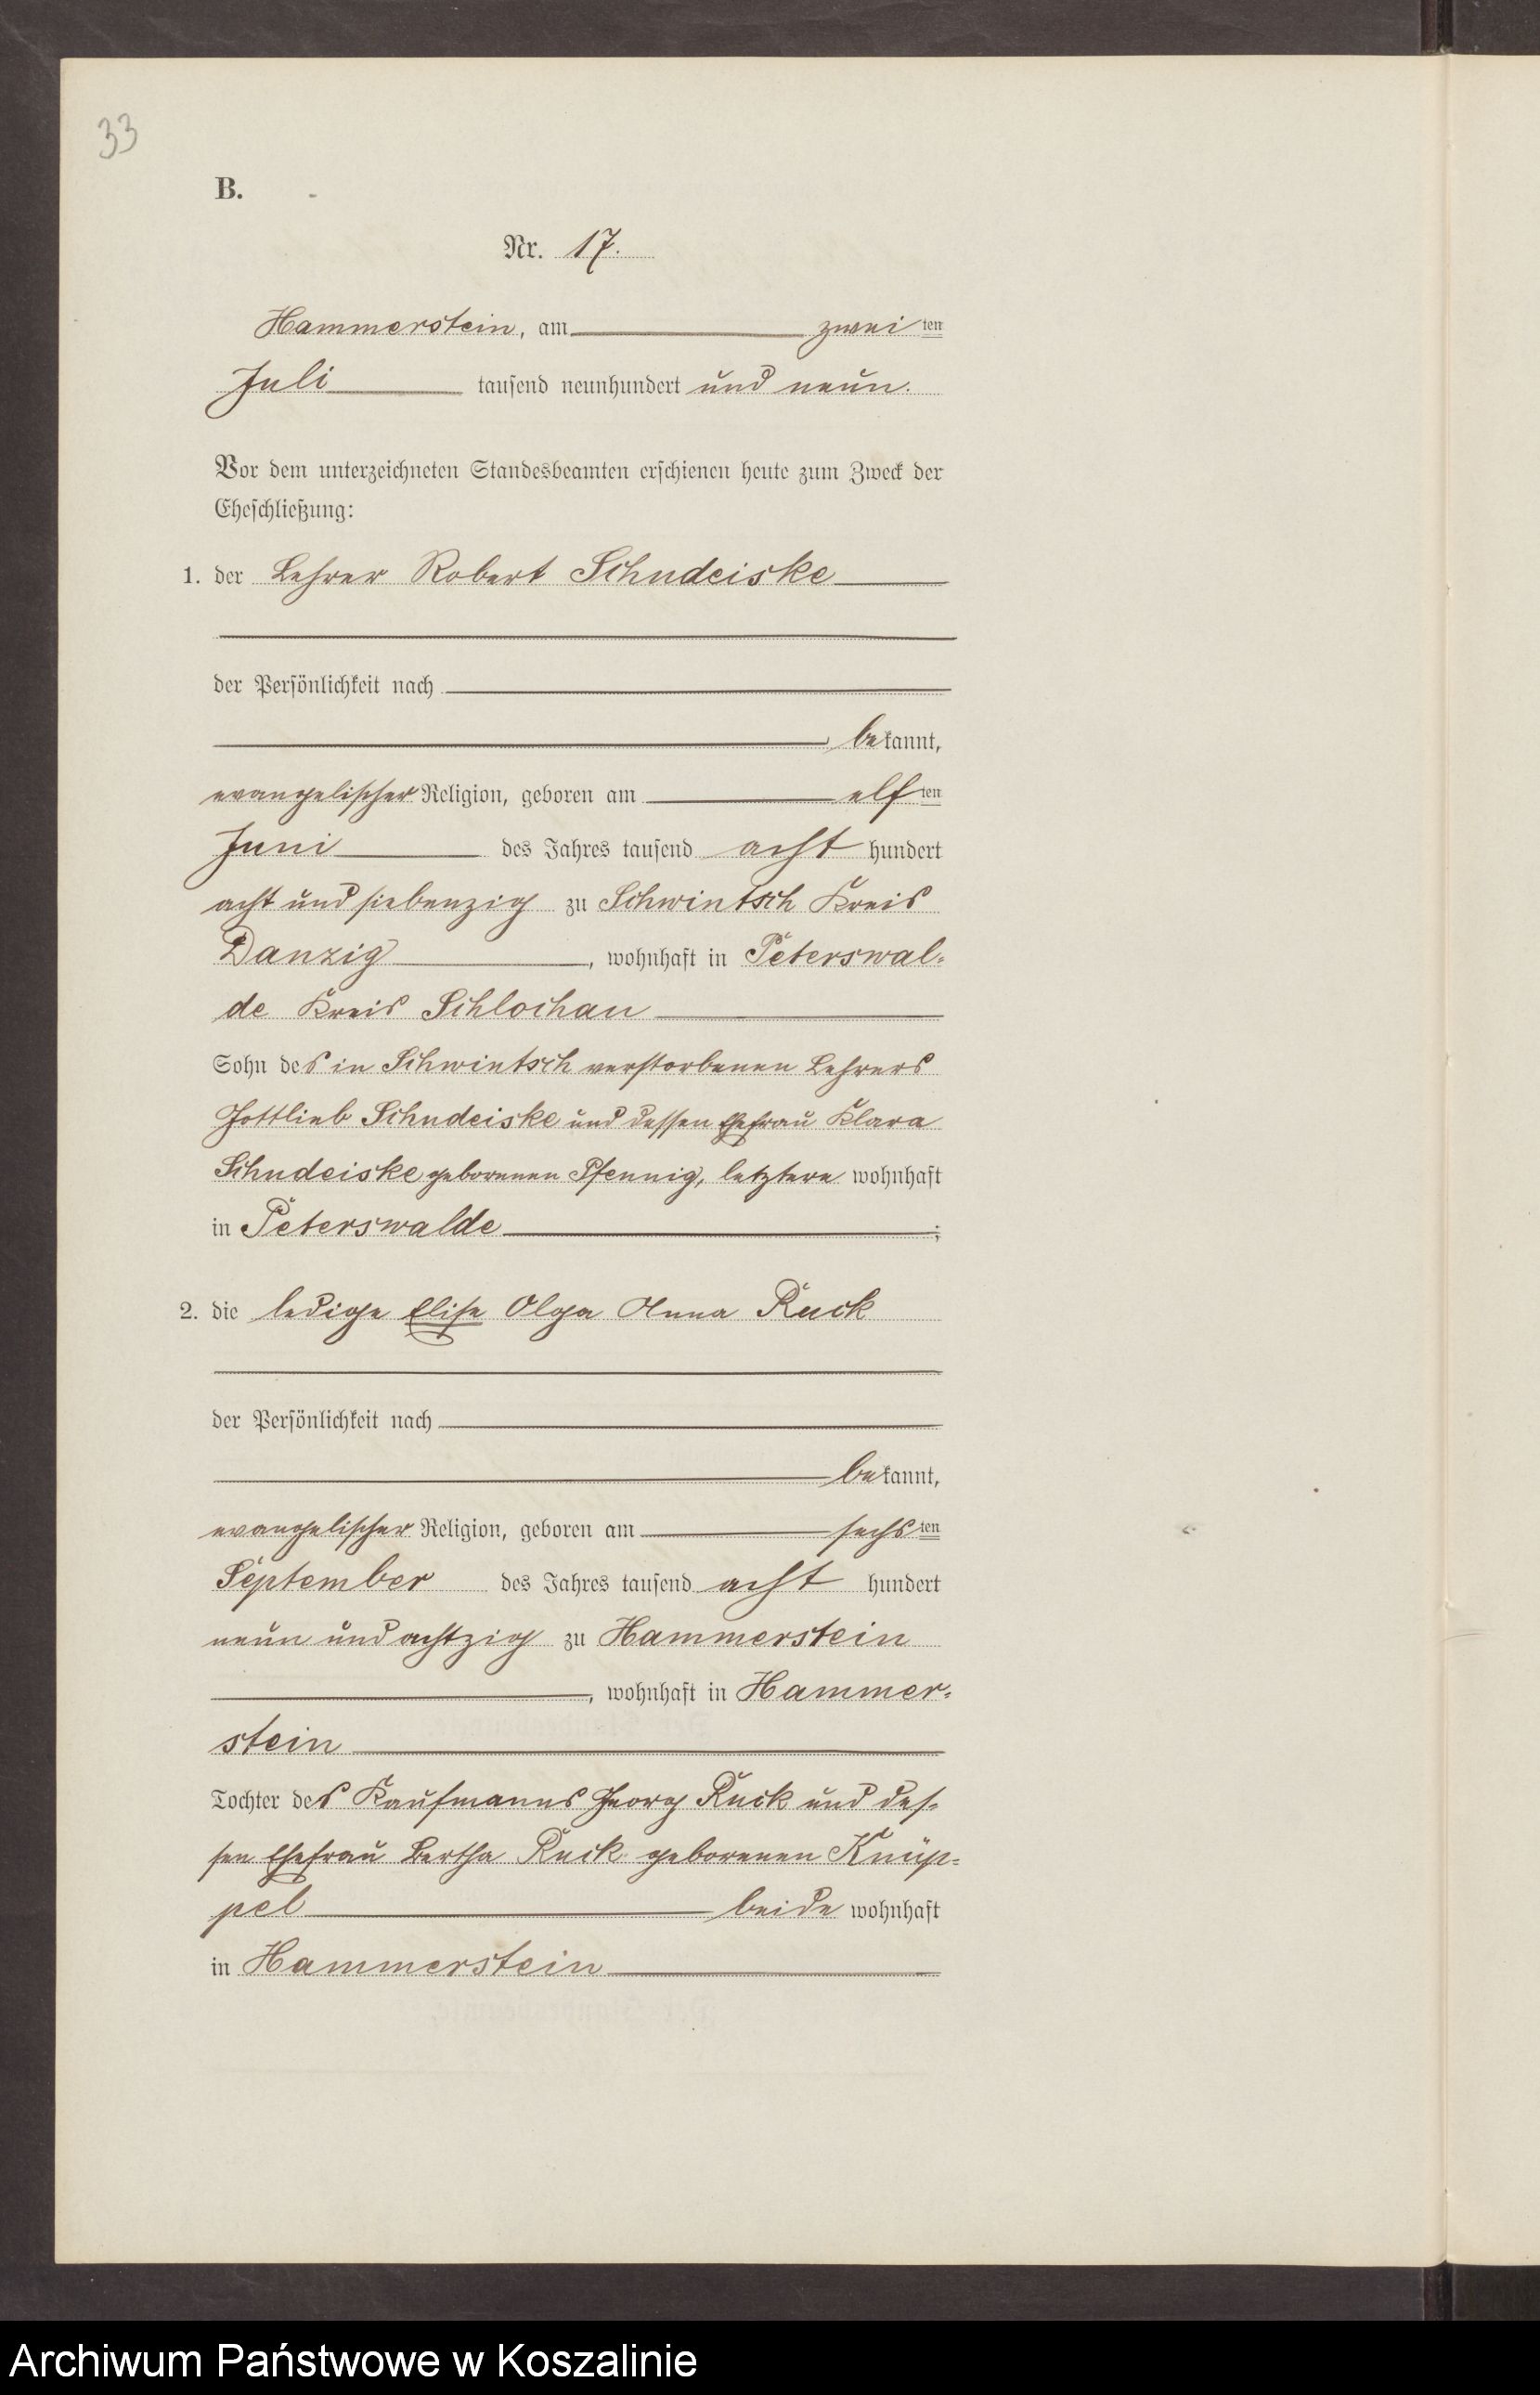 33
B.
Nr. 17.
Hammerstein, am zwei ten
Juli tausend neunhundert und neun.
Vor dem unterzeichneten Standesbeamten erschienen heute zum Zweck der
Eheschließung:
1. der Lehrer Robert Schudeiske
der Persönlichkeit nach
bekannt,
evangelischer Religion, geboren am elf ten
Juni des Jahres tausend acht hundert
acht und siebenzig zu Schwintsch Kreis
Danzig, wohnhaft in Peterswal-
de Kreis Schlochau
Sohn des in Schwintsch verstorbenen Lehrers
Gottlieb Schudeiske und dessen Ehefrau Klara
Schudeiske geborenen Pfennig, letztere wohnhaft
in Peterswalde;
2. die ledige Elise Olga Anna Ruck
der Persönlichkeit nach
bekannt,
evangelischer Religion, geboren am sechs ten
September des Jahres tausend acht hundert
neun und achtzig zu Hammerstein
, wohnhaft in Hammer-
stein
Tochter des Kaufmanns Georg Ruck und des-
sen Ehefrau Bertha Ruck geborenen Knüp-
pel beide wohnhaft
in Hammerstein
Archiwum Państwowe w Koszalinie